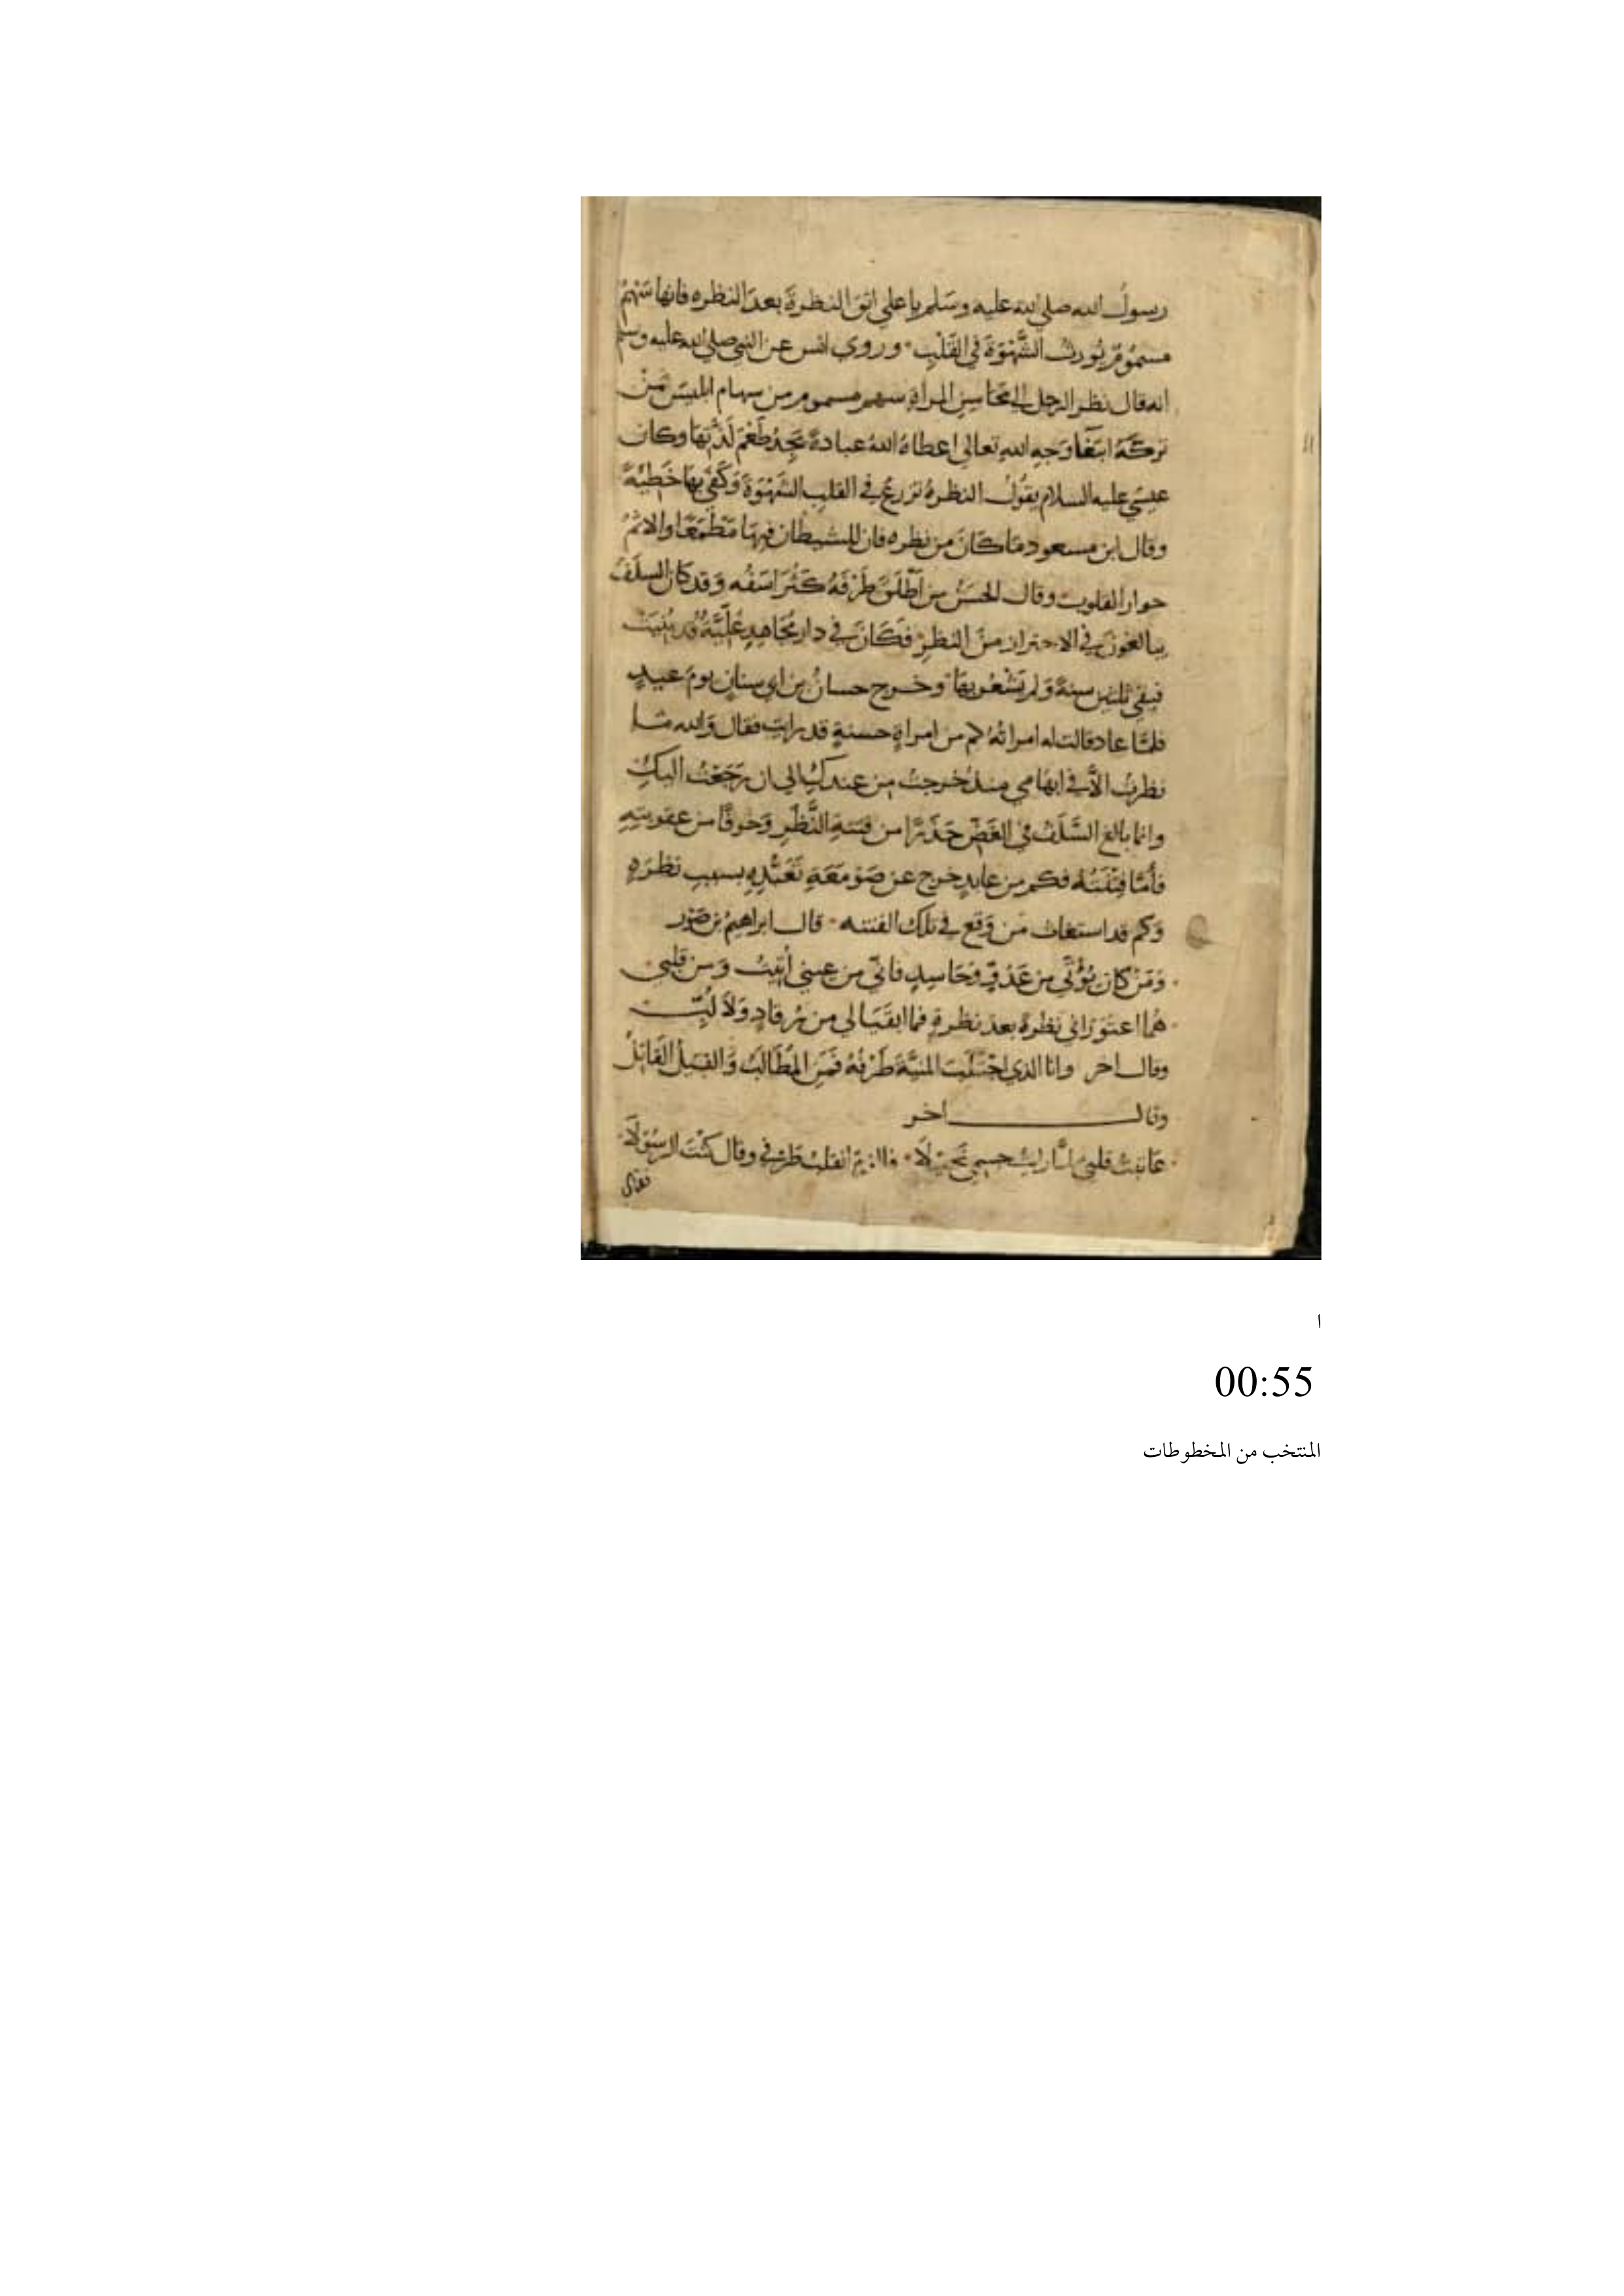 رسولُ الله صلى الله عليه وسَلم يا علي اتقِ النظرةَ بعدَ النظره فانها سَهْمٌ
مسمُومٌ يُورثُ الشَّهْوَةَ في القَلْبِ وروى انس عن النبي صلى الله عليه وسلم
انه قال نظر الرجل الى محَاسِنِ المراةِ سهم مسموم من سهام ابليسَ مَنْ
تركَهُ ابتغآ وَجهِ اللهِ تعالى اعطاهُ اللهُ عبادةً يجدُ طَعْمَ لَذّتِهَا وكان
عيسَى عليه السلام يقُولُ النظرةُ تزرعُ في القلبِ الشَهْوَةَ وَكَفَى بهَا خَطِيَّةً
وقال ابن مسعود مَا كَانَ من نظره فان للشيطان فيهَا مَطْمَعًا والاثمُ
حواز القلوب وقال الحسَنُ من اَطْلَقَ طَرْفَهُ كَثُرَ اسَفُه وَقد كانَ السلَفُ
يبالغونَ في الاحتراز منَ النظرِ فَكَانَ في دار مُجَاهِدٍ عُلِيَّةٌ قد بُنيَتْ
فبقى ثلثين سنةً وَلم يَشْعُر بهَا وخرج حسانُ بن ابي سنانٍ يومَ عيدٍ
فلمَّا عاد قالت له امراتُهُ كم من امراةٍ حسنةٍ قد رايتَ فقال وَالله مَا
نظرتُ الاَّ في ابهَامي منذُ خرجتُ من عندكِ الى ان رَجَعْتُ اليكِ
وانما بالغ السَّلَفُ في الغَضِّ حَذَرًا من فتنةِ النَّظَرِ وَخوفًا من عقوبتِهِ
فأمَّا فِتْنَتُهُ فكم من عابدٍ خرج عن صَوْمَعَةِ تَعَبُّدِهِ بسببِ نظرَةٍ
وَكم قد استغاث مَن وَقع في تلك الفتنه قال ابراهيمُ بن صَوْر
وَمَنْ كان يُؤْتَى من عَدُوٍّ وَحَاسِدٍ فانّي من عيني أُتيتُ وَمن قلبي
هُمَا اعتَوَرَانى نظرةً بعدَ نظرةٍ فما ابقَيَا لى من رُقادٍ وَلاَ لُبّ
وقال اخر وانا الذي اجْتَلَبَ المنيَّةَ طَرْفُهُ فَمَنِ المُطَالَبُ وَالقتيلُ القَاتِلُ
وقال اخر
عَاتبتُ قلبي لمَّا رايتُ جسمي نحِيْلاَ فالزم القلبُ طَرْفي وقال كنْتَ الرسُوْلاَ
فقال
ا
00:55
المنتخب من المخطوطات